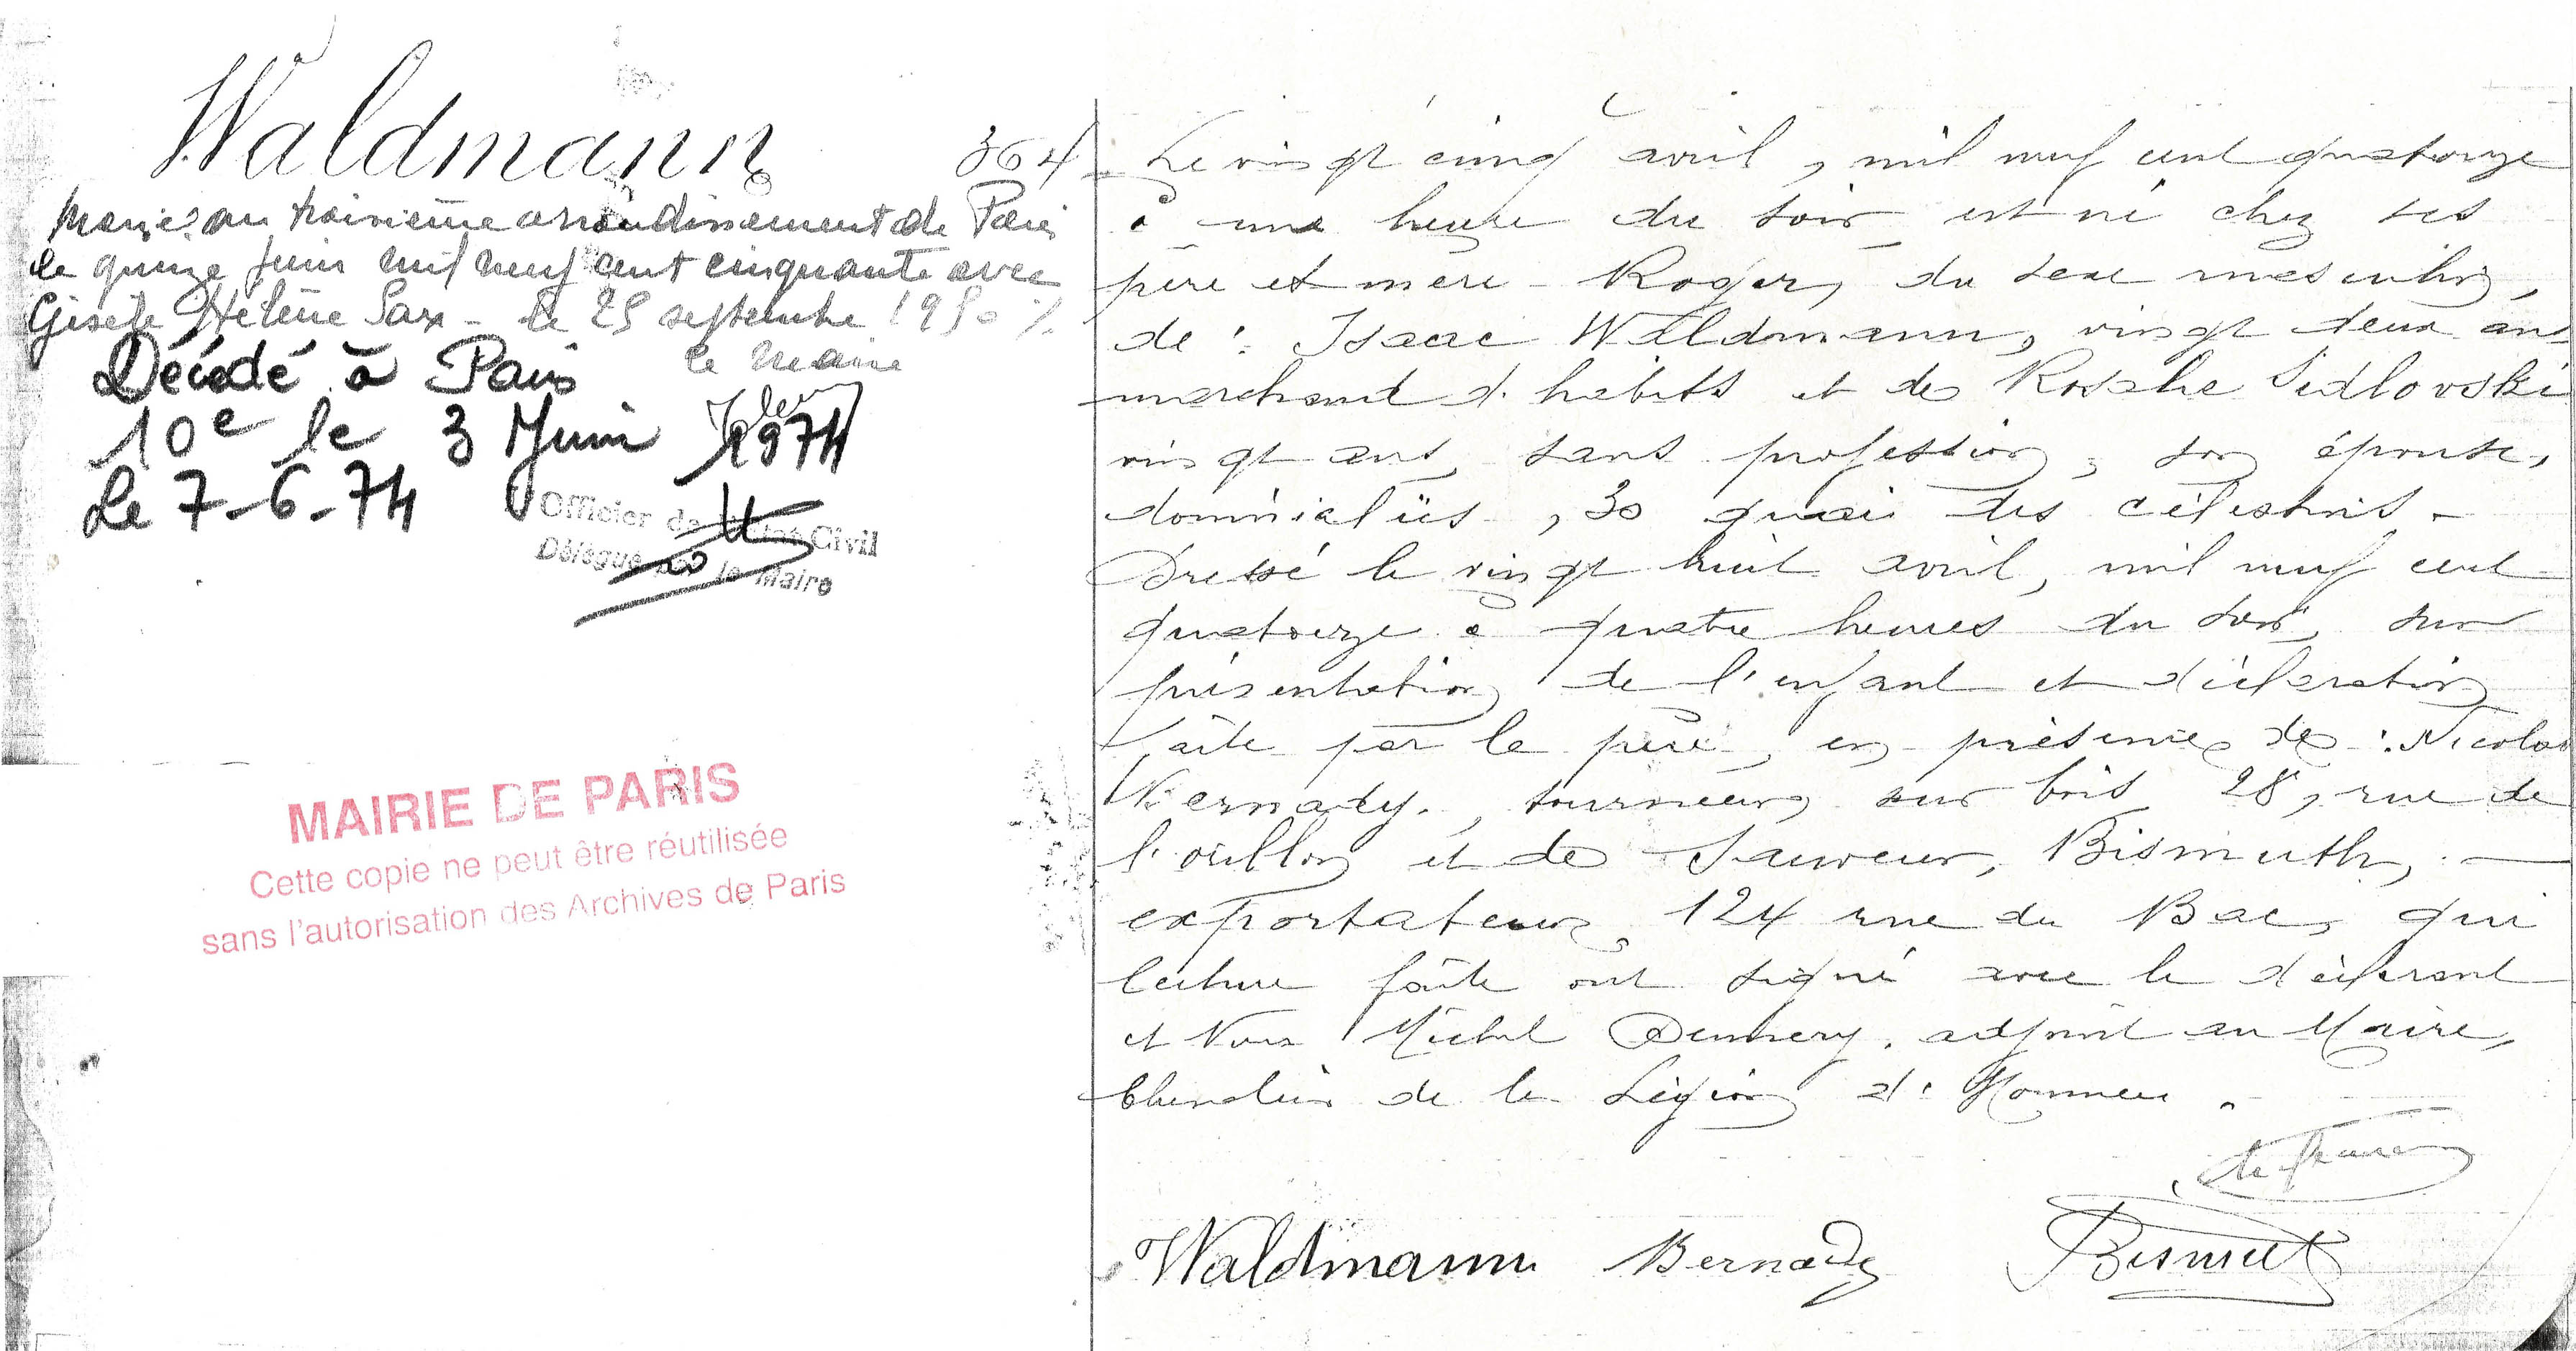 Waldmann
364
Marié au troisième arrondissement de Paris
le quinze juin mil neuf cent cinquante avec
Gisèle Hélène Sax - le 25 septembre 1950 %.
le maire
Décédé à Paris
10e le 3 Juin 1974
Le 7-6-74
Officier de l'Etat Civil
Délégué par le Maire
MAIRIE DE PARIS
Cette copie ne peut être réutilisée
sans l'autorisation des Archives de Paris
Le vingt cinq avril, mil neuf cent quatorze
à une heure du soir est né chez ses
père et mère - Roger, du sexe masculin,
de : Isaac Waldmann, vingt deux ans
marchand d'habits et de Rosalie Sidlovski
vingt ans, sans profession, son épouse,
domiciliés, 30 quai des célestins -
Dressé le vingt huit avril, mil neuf cent
quatorze à quatre heures du soir, sur
présentation de l'enfant et déclaration
faite par le père, en présence de : Nicolas
Bernady, tourneur sur bois 28, rue de
l'orillon et de Sauveur, Bismuth, -
exportateur, 124 rue du Bac, qui
lecture faite ont signé avec le déclarant
et Nous Michel Dennery, adjoint au Maire,
Chevalier de la Légion d'Honneur.
Waldmann Bernady Bismuth